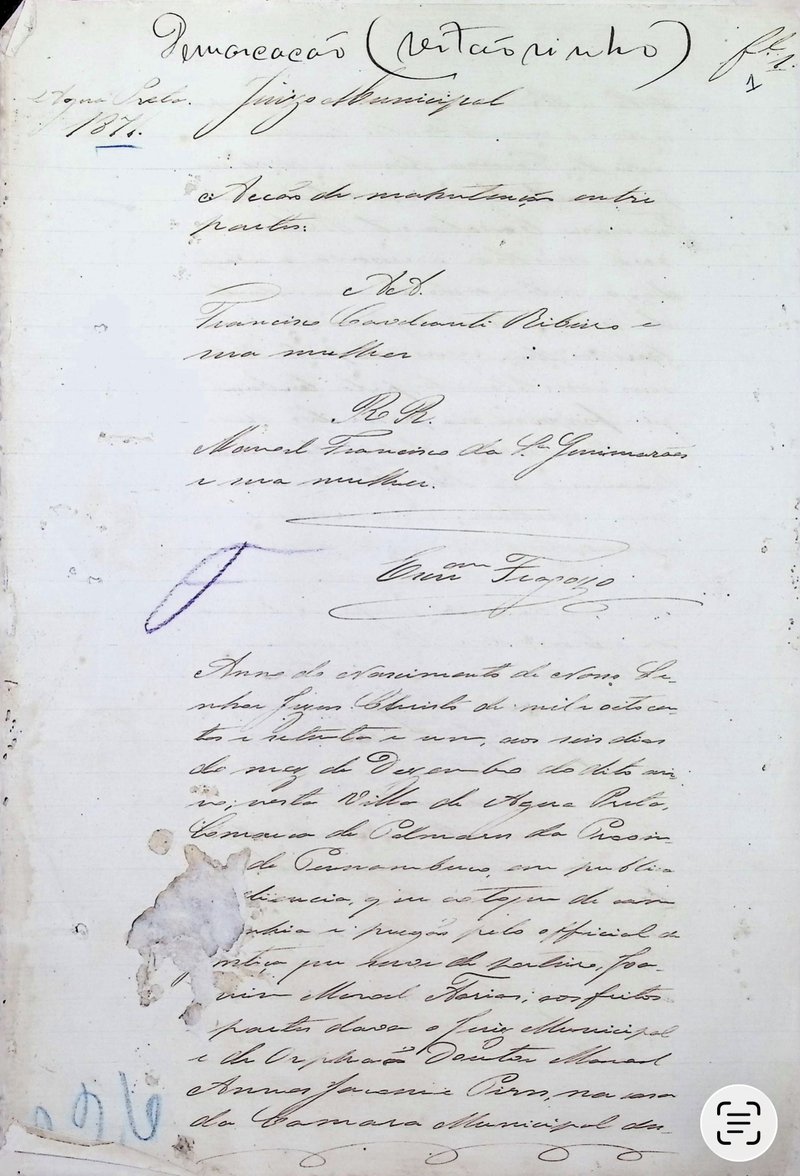 Demarcacão (sertãosinho)
fl. 1.
1
Agua Preta. Juizo Municipal
1871.
Accão de manutenção entre
partes.
AA.
Francisco Cavalcanti Ribeiro e
sua mulher
RR.
Manoel Francisco da Sª Guimarães
e sua mulher.
Escram Fragozo
Anno do Nascimento de Nosso Se-
nhor Jesus Christo de mil e oitocen-
tos e setenta e um, aos seis dias
do mez de Dezembro do dito an-
no, nesta Villa de Agua Preta,
Comarca de Palmares da Provin-
de Pernambuco, em publica
diencia, que ao toque de cam
nhia e pregão pelo official de
ntiça que serve de porteiro, Joa-
uim Manoel Farias; aos feitos
partes dava o Juiz Municipal
e de Orphãos Doutor Manoel
Annes Jacome Pires, na casa
da Camara Municipal da